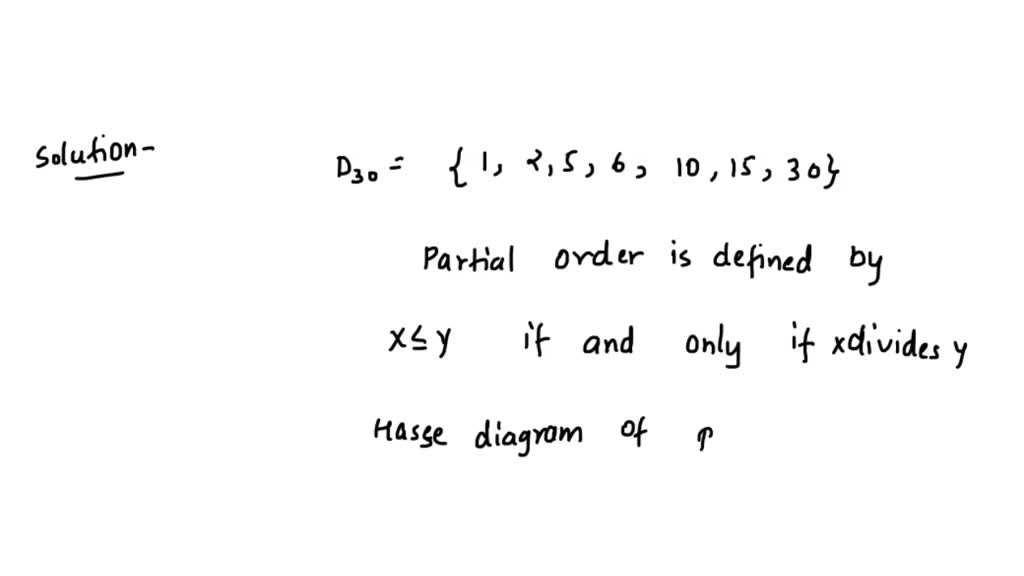 Solution-
D30 = {1, 2, 5, 6, 10, 15, 30}
Partial order is defined by
x≤y if and only if xdivides y
Hasse diagram of